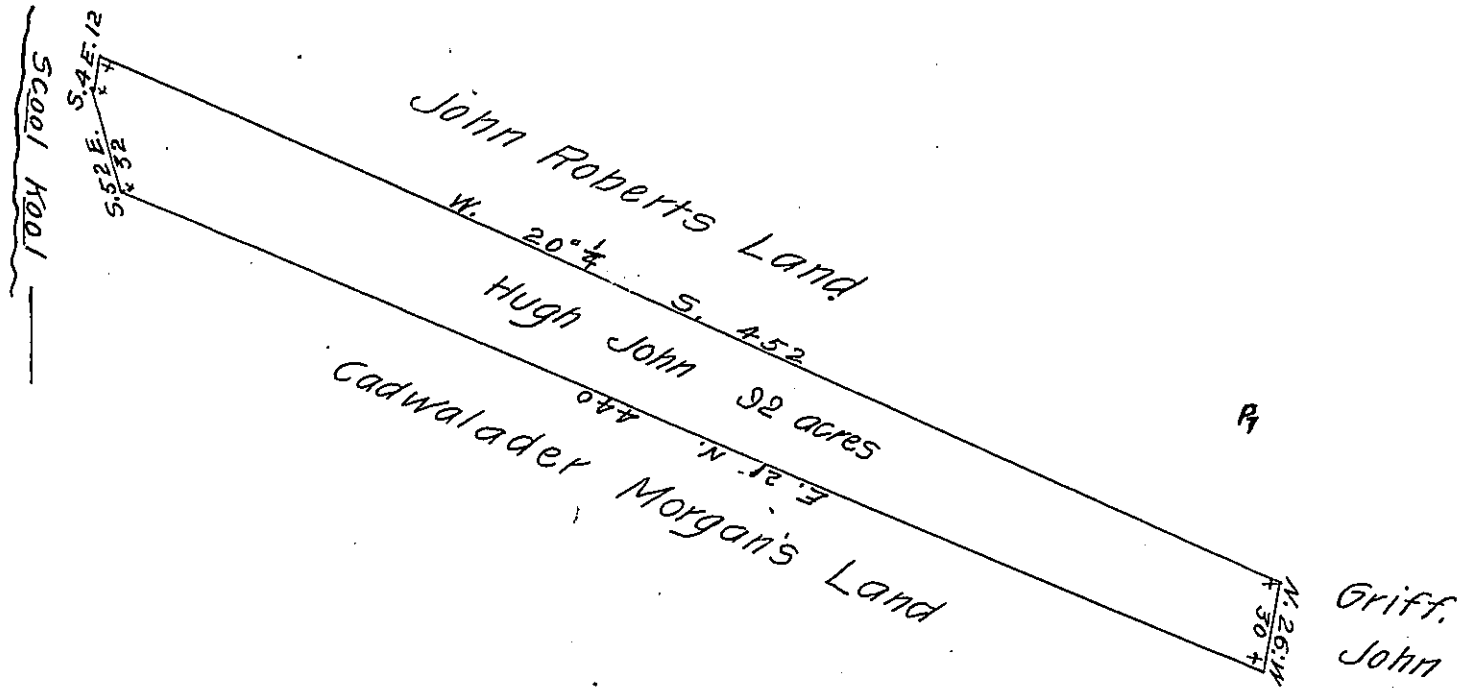 Scool Kool
S.4 E. 12
S.52 E.
32
John Roberts Land
W. 20° 1/4 S. 452
Hugh John 92 acres
E. 21° N. 440
Cadwalader Morgan's Land
N. 26. W
30
Griff.
John